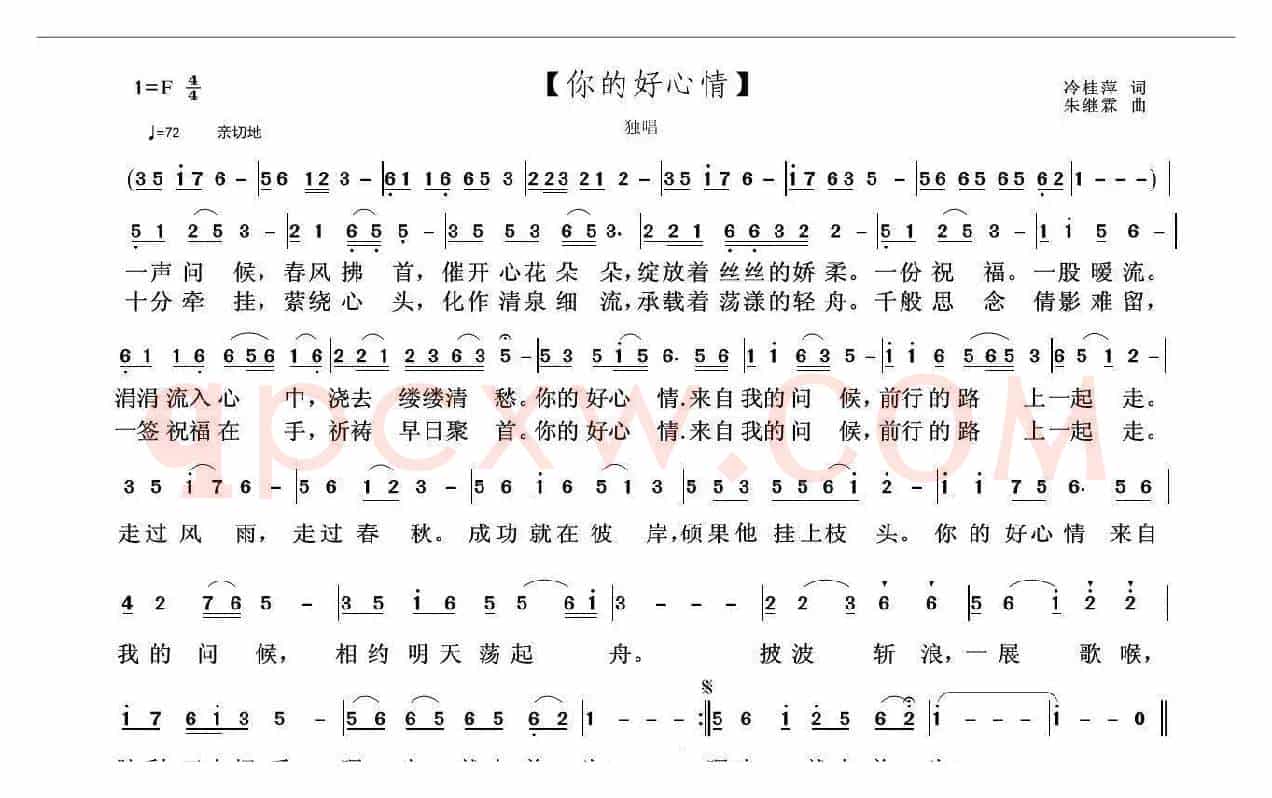 1=F 4/4 【你的好心情】 冷桂萍 词
朱继霖 曲
♩=72 亲切地 独唱
(35 i76-|56 123-|61 16653|22321 2-|35i76-|i7635-|56656562|1---)|
51 253-|21 655-|35 53 653.|221 66322-|51 253-|1i56-|
一声问候，春风拂首，催开心花朵朵，绽放着丝丝的娇柔。一份祝福。一股暖流。
十分牵挂，萦绕心头，化作清泉细流，承载着荡漾的轻舟。千般思念倩影难留，
61 16 656 16|221 2363 5-|53 5i56. 56|ii635-|ii6 5653|651 2-|
涓涓流入心中，浇去缕缕清愁。你的好心情.来自我的问候，前行的路上一起走。
一签祝福在手，祈祷早日聚首。你的好心情.来自我的问候，前行的路上一起走。
35 i76-|56 123-|56 i6 513|553 556i 2-|ii 756. 56|
走过风雨，走过春秋。成功就在彼岸，硕果他挂上枝头。你的好心情来自
42 765-|35 i6 55 6i|3---|223 66|56i 22|
我的问候，相约明天荡起舟。披波斩浪，一展歌喉，
i7 6i35-|566 5565 62|1---:‖56 i25 62|i---|i--0‖
qpcxw.COM